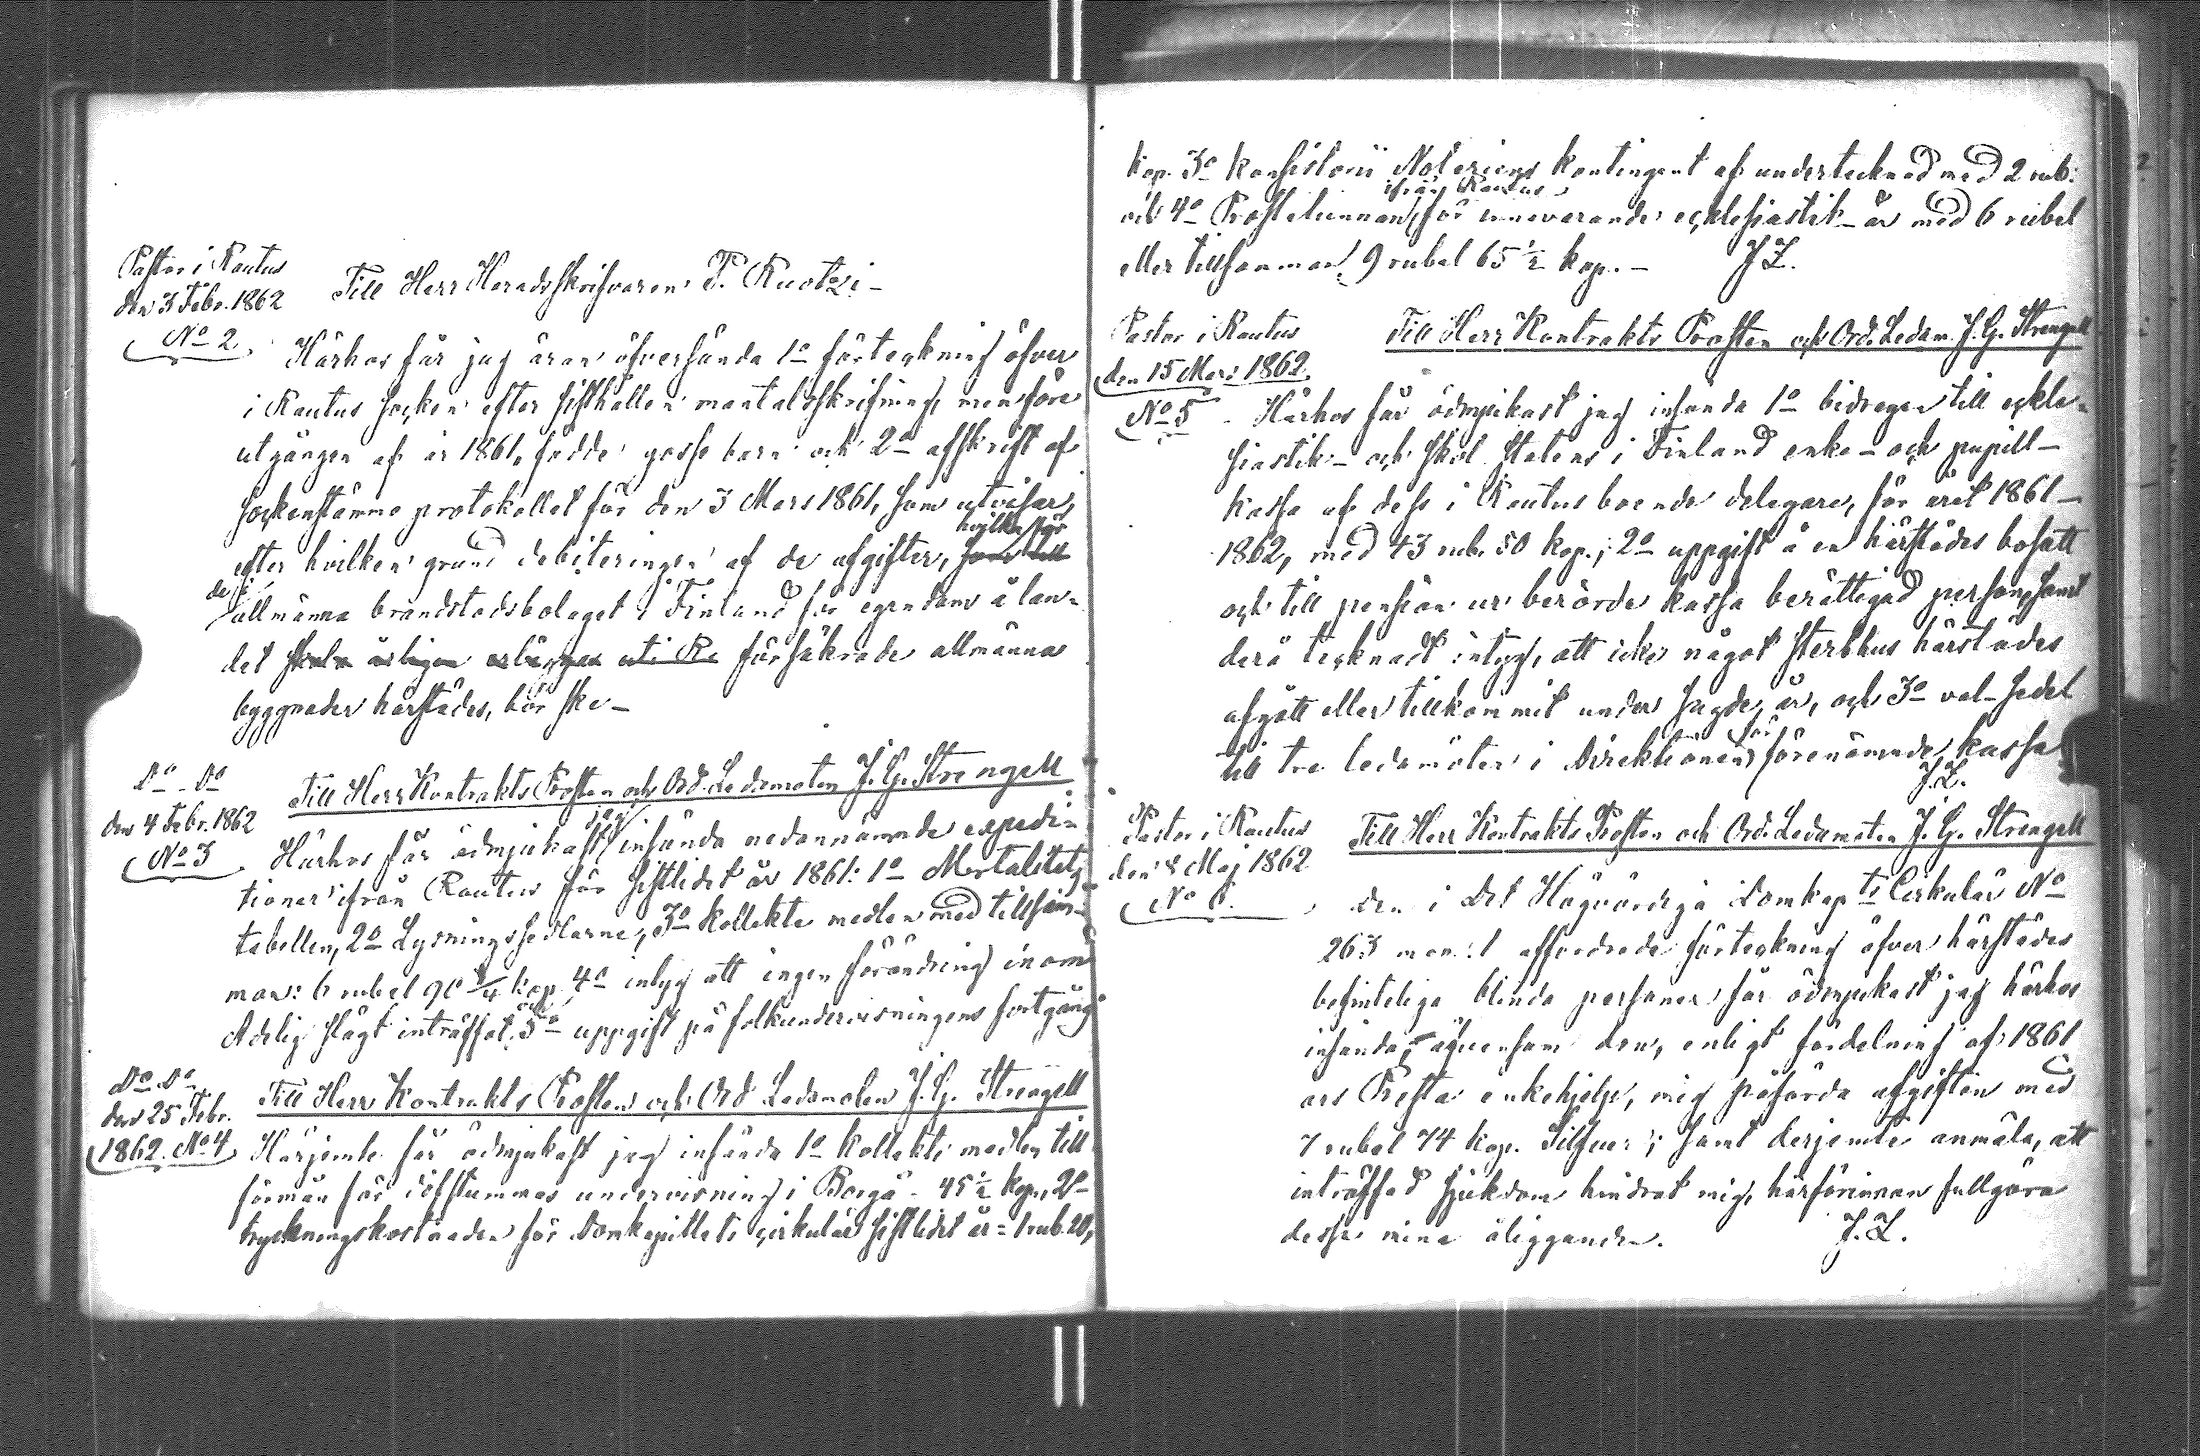 Pastor i Rautus
den 3 Febr. 1862
No 2.
Till Herr Häradsskrifvaren F. Kuotzi –
Härhos får jag äran öfversända 1o förteckning öfver
i Rautus socken efter sisthållen mantalsskrifning, men före
utgången af år 1861, födde gosse barn och 2o afskrift af
sockenstämmo protokollet för den 3 Mars 1861, som utvisar,
hvilka för
efter hvilken grund debiteringen af de afgifter, som till
de i
allmänna brandstodsbolaget i Finland för egendom å lan-
det skola årligen erläggas uti Ra försäkrade allmänna
byggnader härstädes, bör ske –
Do – Do
den 4 Febr. 1862
No 3
Till Herr Kontrakts Prosten och Ord. Ledamoten J. G. Strengell
jag
Härhos får ödmjukast insända nedannämnde expedi-
tioner ifrån Rautus för sistlidet år 1861: 1o Mortalitets
tabellen, 2o Lysningssedlarne, 3o kollekte medlen med tillsam-
man: 6 rubel 90 3/4 kop. 4o intyg att ingen förändring inom
och
Adelig slägt inträffat, 5o uppgift på folkundervisningens fortgång
Do Do
den 25 Febr.
1862. No 4
Till Herr Kontrakts Prosten och Ord Ledamoten J. G. Strengell
Härjemte får ödmjukast jag insända 1o Kollekte medlen till
förmån för döfstummas undervisning i Borgå – 45 1/2 kop, 2o
tryckningskostnaden för Domkapitlets cirkulär sistlidet år = 1 rub. 20,
kop. 3o Konsistorii Notariens kontingent af undertecknad med 2 rub:
ifrån Rautus
och 4o Prostetunnan för innevarande ecklesiastik-år med 6 rubel
eller tillsamman 9 rubel 65 1/2 kop. – J. L.
Pastor i Rautus
den 15 Mars 1862
No 5
Till Herr Kontrakts Prosten och Ord. Ledam. J. G. Strengell
Härhos får ödmjukast jag insända 1o bidragen till eckle-
siastik- och skol statens i Finland enke- och pupill-
kassa af dess i Rautus boende delegare, för året 1861–
1862, med 43 rub. 50 kop.; 2o uppgift å en härstädes bosatt
och till pension ur berörde kassa berättigad person, samt
derå tecknadt intyg, att icke något sterbhus härstädes
afgått eller tillkommit under sagde år, och 3o val-sedel
för
till tre ledamöter i Direktionen förenämnde kassa
J. L.
Pastor i Rautus
den 8 Maj 1862
No 6.
Till Herr Kontrakts Prosten och Ord. Ledamoten J. G. Strengell
Den i Det Högvördiga Domkap ts Cirkulär No
263 mom: 1 affordrade förteckning öfver härstädes
befintliga blinda personer får ödmjukast jag härhos
insända, äfvensom den, enligt fördelning af 1861
års Presta enkehjelp, mig påförda afgiften med
7 rubel 74 kop. Silfver; samt derjemte anmäla, att
inträffad sjukdom hindrat mig, härförinnan fullgöra
dessa mina åligganden. J. L.